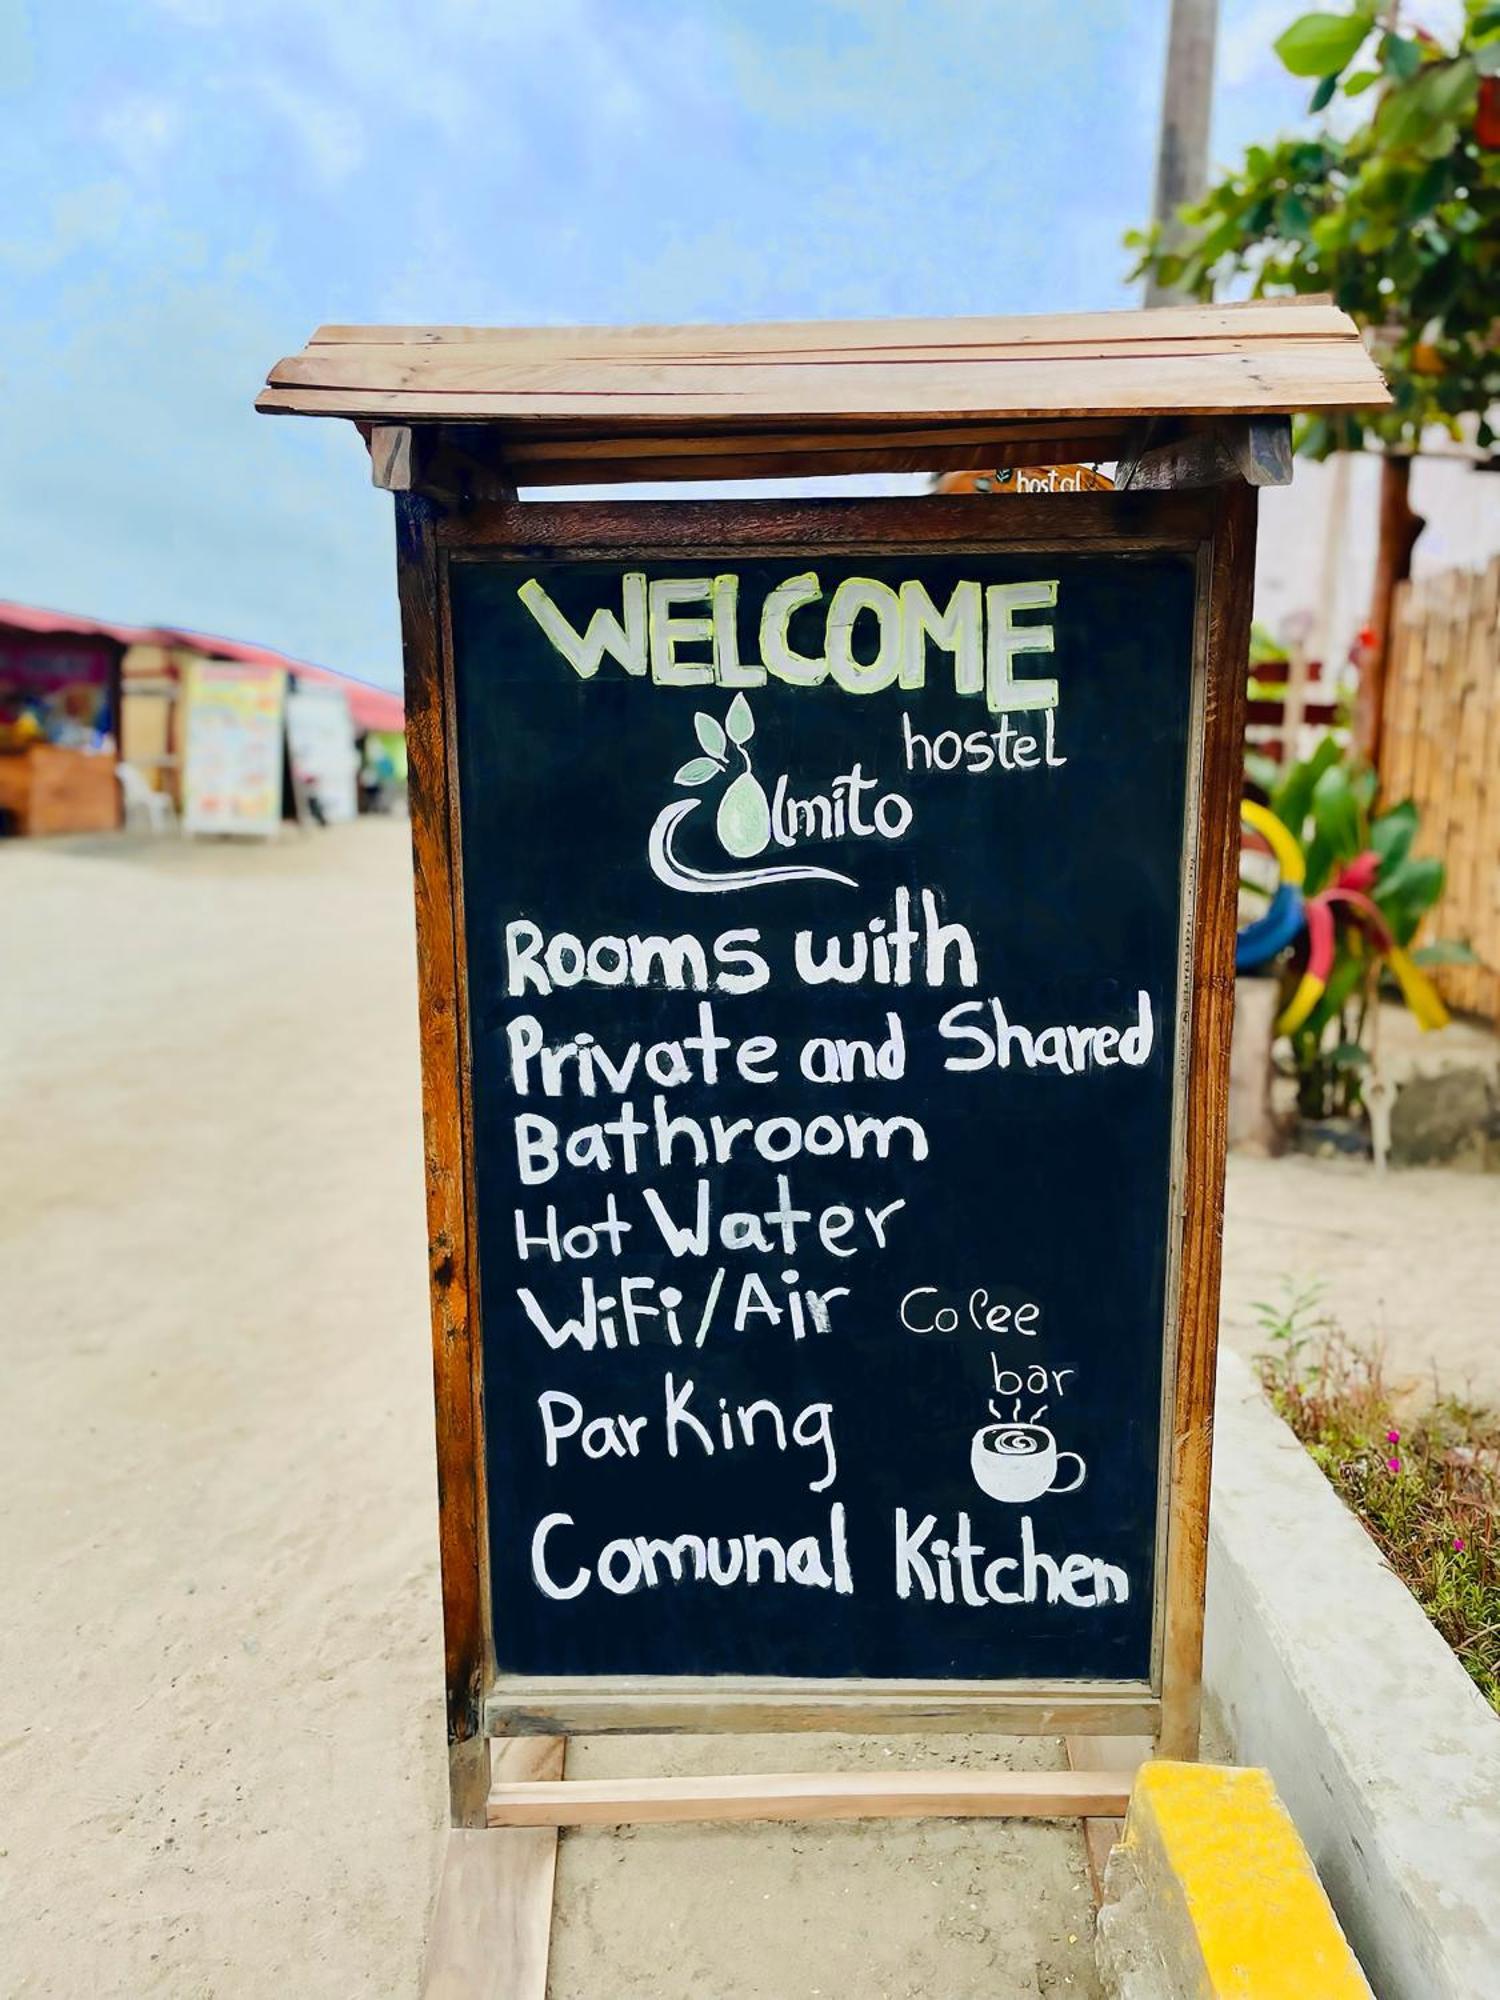 hostal
WELCOME
hostel
Olmito
Rooms with
Private and Shared
Bathroom
Hot Water
WiFi/Air
Cofee
bar
Parking
Comunal Kitchen